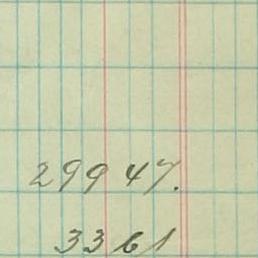 29947.
3361